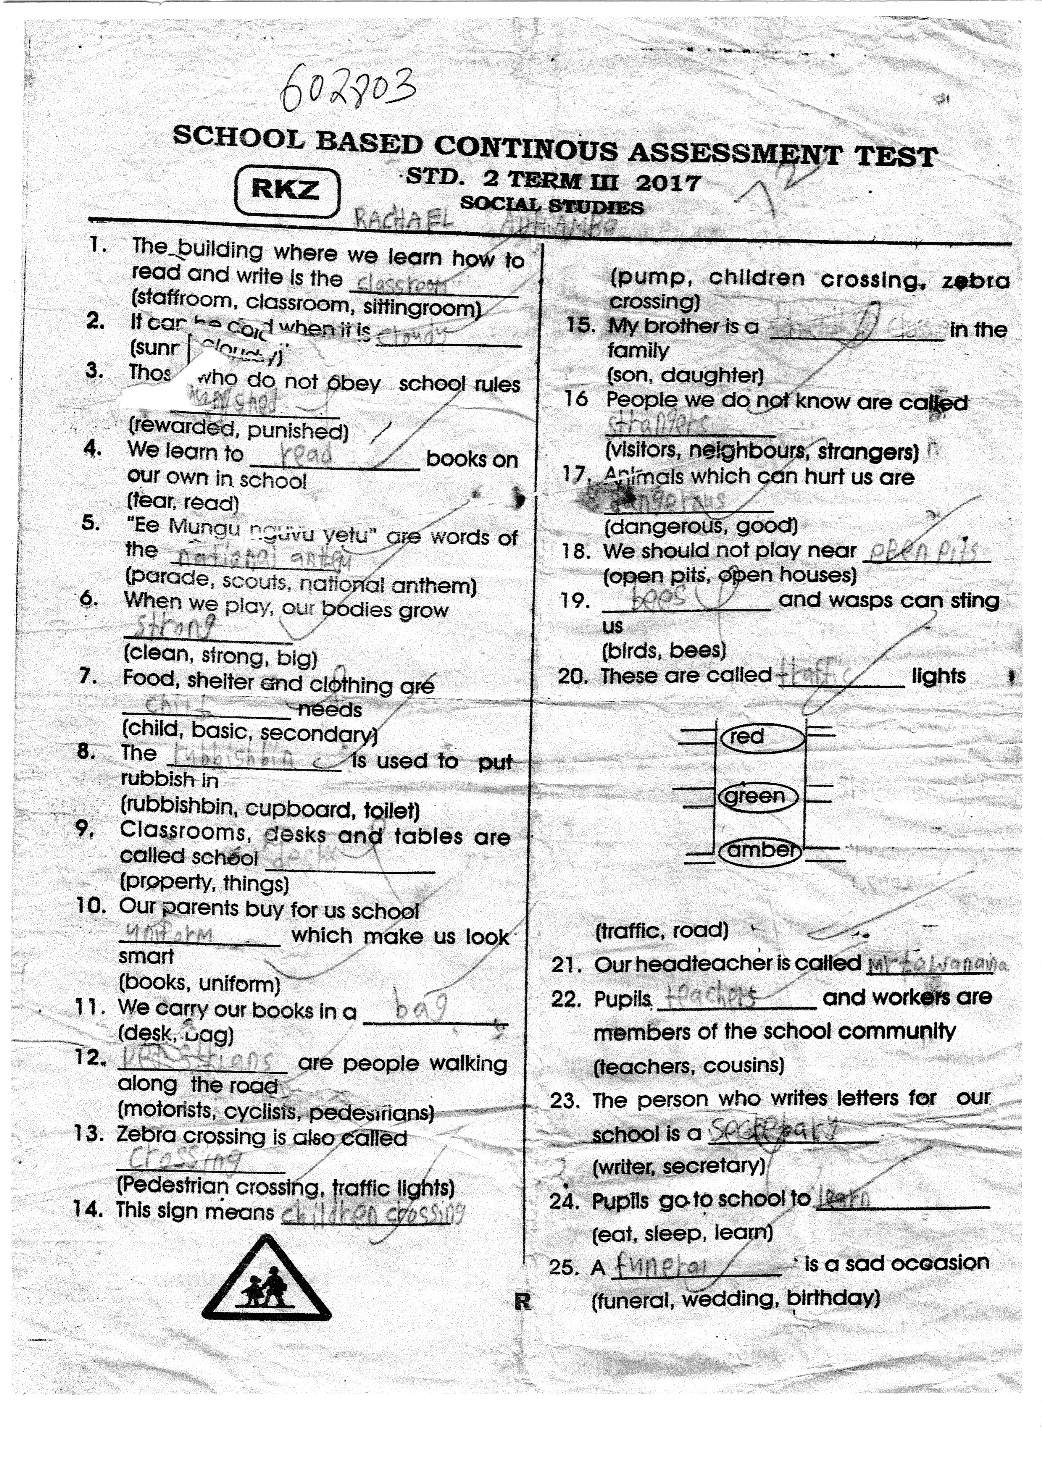 602803
SCHOOL BASED CONTINOUS ASSESSMENT TEST
RKZ
STD. 2 TERM III 2017
SOCIAL STUDIES
72
RACHAEL
1. The building where we learn how to
read and write is the classroom
(staffroom, classroom, sittingroom)
2. It can be cold when it is cloudy
(sunr cloudy)
3. Thos who do not obey school rules
punished
(rewarded, punished)
4. We learn to read books on
our own in school
(tear, read)
5. "Ee Mungu nguvu yetu" are words of
the national
(parade, scouts, national anthem)
6. When we play, our bodies grow
strong
(clean, strong, big)
7. Food, shelter and clothing are
child needs
(child, basic, secondary)
8. The rubbishbin is used to put
rubbish in
(rubbishbin, cupboard, toilet)
9. Classrooms, desks and tables are
called school
(property, things)
10. Our parents buy for us school
uniform which make us look
smart
(books, uniform)
11. We carry our books in a bag
(desk, bag)
12. are people walking
along the road
(motorists, cyclists, pedestrians)
13. Zebra crossing is also called
crossing
(Pedestrian crossing, traffic lights)
14. This sign means children crossing
(pump, children crossing, zebra
crossing)
15. My brother is a class in the
family
(son, daughter)
16 People we do not know are called
strangers
(visitors, neighbours, strangers)
17. Animals which can hurt us are
dangerous
(dangerous, good)
18. We should not play near open pits
(open pits, open houses)
19. bees and wasps can sting
us
(birds, bees)
20. These are called traffic lights
red
green
amber
(traffic, road)
21. Our headteacher is called
22. Pupils, teachers and workers are
members of the school community
(teachers, cousins)
23. The person who writes letters for our
school is a
(writer, secretary)
24. Pupils go to school to learn
(eat, sleep, learn)
25. A funeral is a sad occasion
(funeral, wedding, birthday)
R